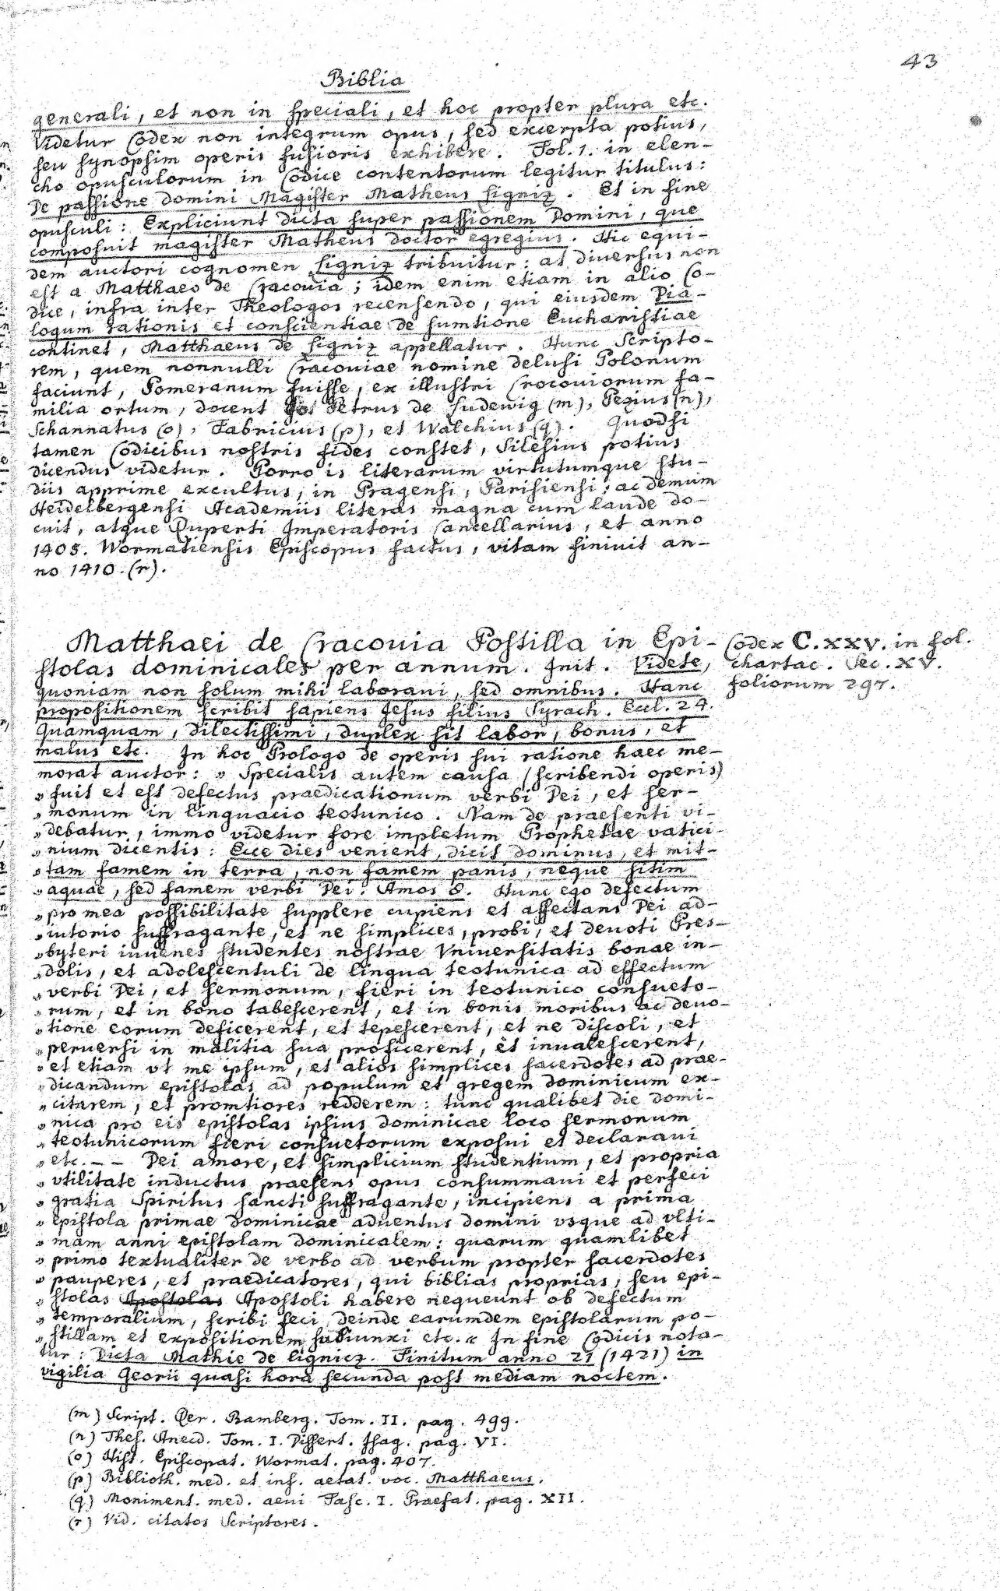 43
Biblia
generali, et non in speciali, et hoc propter plura etc.
Videtur Codex non integrum opus, sed excerpta potius,
seu synopsim operis fusioris exhibere. Fol. 1. in elen-
cho opusculorum in Codice contentorum legitur titulus:
De passione domini Magister Matheus Signiz. Et in fine
opusculi: Expliciunt dicta super passionem Domini, que
composuit magister Matheus doctor egregius. Hic equi-
dem auctori cognomen Signiz tribuitur: at diversus non
est a Matthaeo de Cracouia; idem enim etiam in alio Co-
dice, infra inter Theologos recensendo, qui eiusdem Dia-
logum rationis et conscientiae de sumtione Eucharistiae
continet, Matthaeus de Signiz appellatur. Hunc Scripto-
rem, quem nonnulli Cracouiae nomine delusi Polonum
faciunt, Pomeranum fuisse, ex illustri Crocouiorum fa-
milia ortum, docent Petrus de Ludewig (m), Pezius (n),
Schannatus (o), Fabricius (p), et Walchius (q). Quodsi
tamen Codicibus nostris fides constet, Silesius potius
dicendus videtur. Porro is literarum virtutumque stu-
diis apprime excultus, in Pragensi, Parisiensi; ac demum
Heidelbergensi Academiis literas magna cum laude do-
cuit, atque Ruperti Imperatoris Cancellarius, et anno
1405. Wormatiensis Episcopus factus, vitam finiuit an-
no 1410. (r).
Matthaei de Cracouia Postilla in Epi-
stolas dominicales per annum. Init. Videte,
quoniam non solum mihi laboraui, sed omnibus. Hanc
propositionem scribit sapiens Jesus filius Syrach. Eccl. 24.
Quamquam, dilectissimi, duplex sit labor, bonus, et
malus etc. In hoc Prologo de operis sui ratione haec me-
morat auctor: „ Specialis autem causa (scribendi operis)
„ fuit et est defectus praedicationum verbi Dei, et ser-
„ monum in linguacio teotunico. Nam de praesenti vi-
„ debatur, immo videtur fore impletum Prophetae vatici-
„ nium dicentis: Ecce dies venient, dicit dominus, et mit-
„ tam famem in terra, non famem panis, neque sitim
„ aquae, sed famem verbi Dei. Amos 8. Hunc ego defectum
„ pro mea possibilitate supplere cupiens et affectans Dei ad-
„ iutorio suffragante, et ne simplices, probi, et deuoti Pres-
„ byteri iuuenes studentes nostrae Vniuersitatis bonae in-
„ dolis, et adolescentuli de lingua teotunica ad effectum
„ verbi Dei, et sermonum, fieri in teotunico consueto-
„ rum, et in bono tabescerent, et in bonis moribus ac deuo-
„ tione eorum deficerent, et tepescerent, et ne discoli, et
„ peruersi in malitia sua proficerent, et inualescerent,
„ et etiam vt me ipsum, et alios simplices sacerdotes ad prae-
„ dicandum epistolas ad populum et gregem dominicum ex-
„ citarem, et promtiores redderem: tunc qualibet die domi-
„ nica pro eis epistolas ipsius dominicae loco sermonum
„ teotunicorum fieri consuetorum exposui et declaraui
„ etc. – – Dei amore, et simplicium studentium, et propria
„ vtilitate inductus praesens opus consummaui et perfeci
„ gratia Spiritus sancti suffragante, incipiens a prima
„ epistola primae dominicae aduentus domini vsque ad vlti-
„ mam anni epistolam dominicalem: quarum quamlibet
„ primo textualiter de verbo ad verbum propter sacerdotes
„ pauperes, et praedicatores, qui biblias proprias, seu epi-
„ stolas Apostolas Apostoli habere nequeunt ob defectum
„ temporalium, scribi feci, deinde earumdem epistolarum po-
„ stillam et expositionem subiunxi etc. « In fine Codicis nota-
tur: Dicta Mathie de lignicz. Finitum anno 21 (1421) in
vigilia Georii quasi hora secunda post mediam noctem.
Codex C.XXV. in fol.
chartac. Sec. XV.
foliorum 297.
(m) Script. Rer. Bamberg. Tom. II. pag. 499.
(n) Thes. Anecd. Tom. I. Dissert. Isag. pag. VI.
(o) Hist. Episcopat. Wormat. pag. 407.
(p) Biblioth. med. et inf. aetat. voc. Matthaeus.
(q) Moniment. med. aeui Fasc. I. Praefat. pag. XII.
(r) Vid. citatos Scriptores.